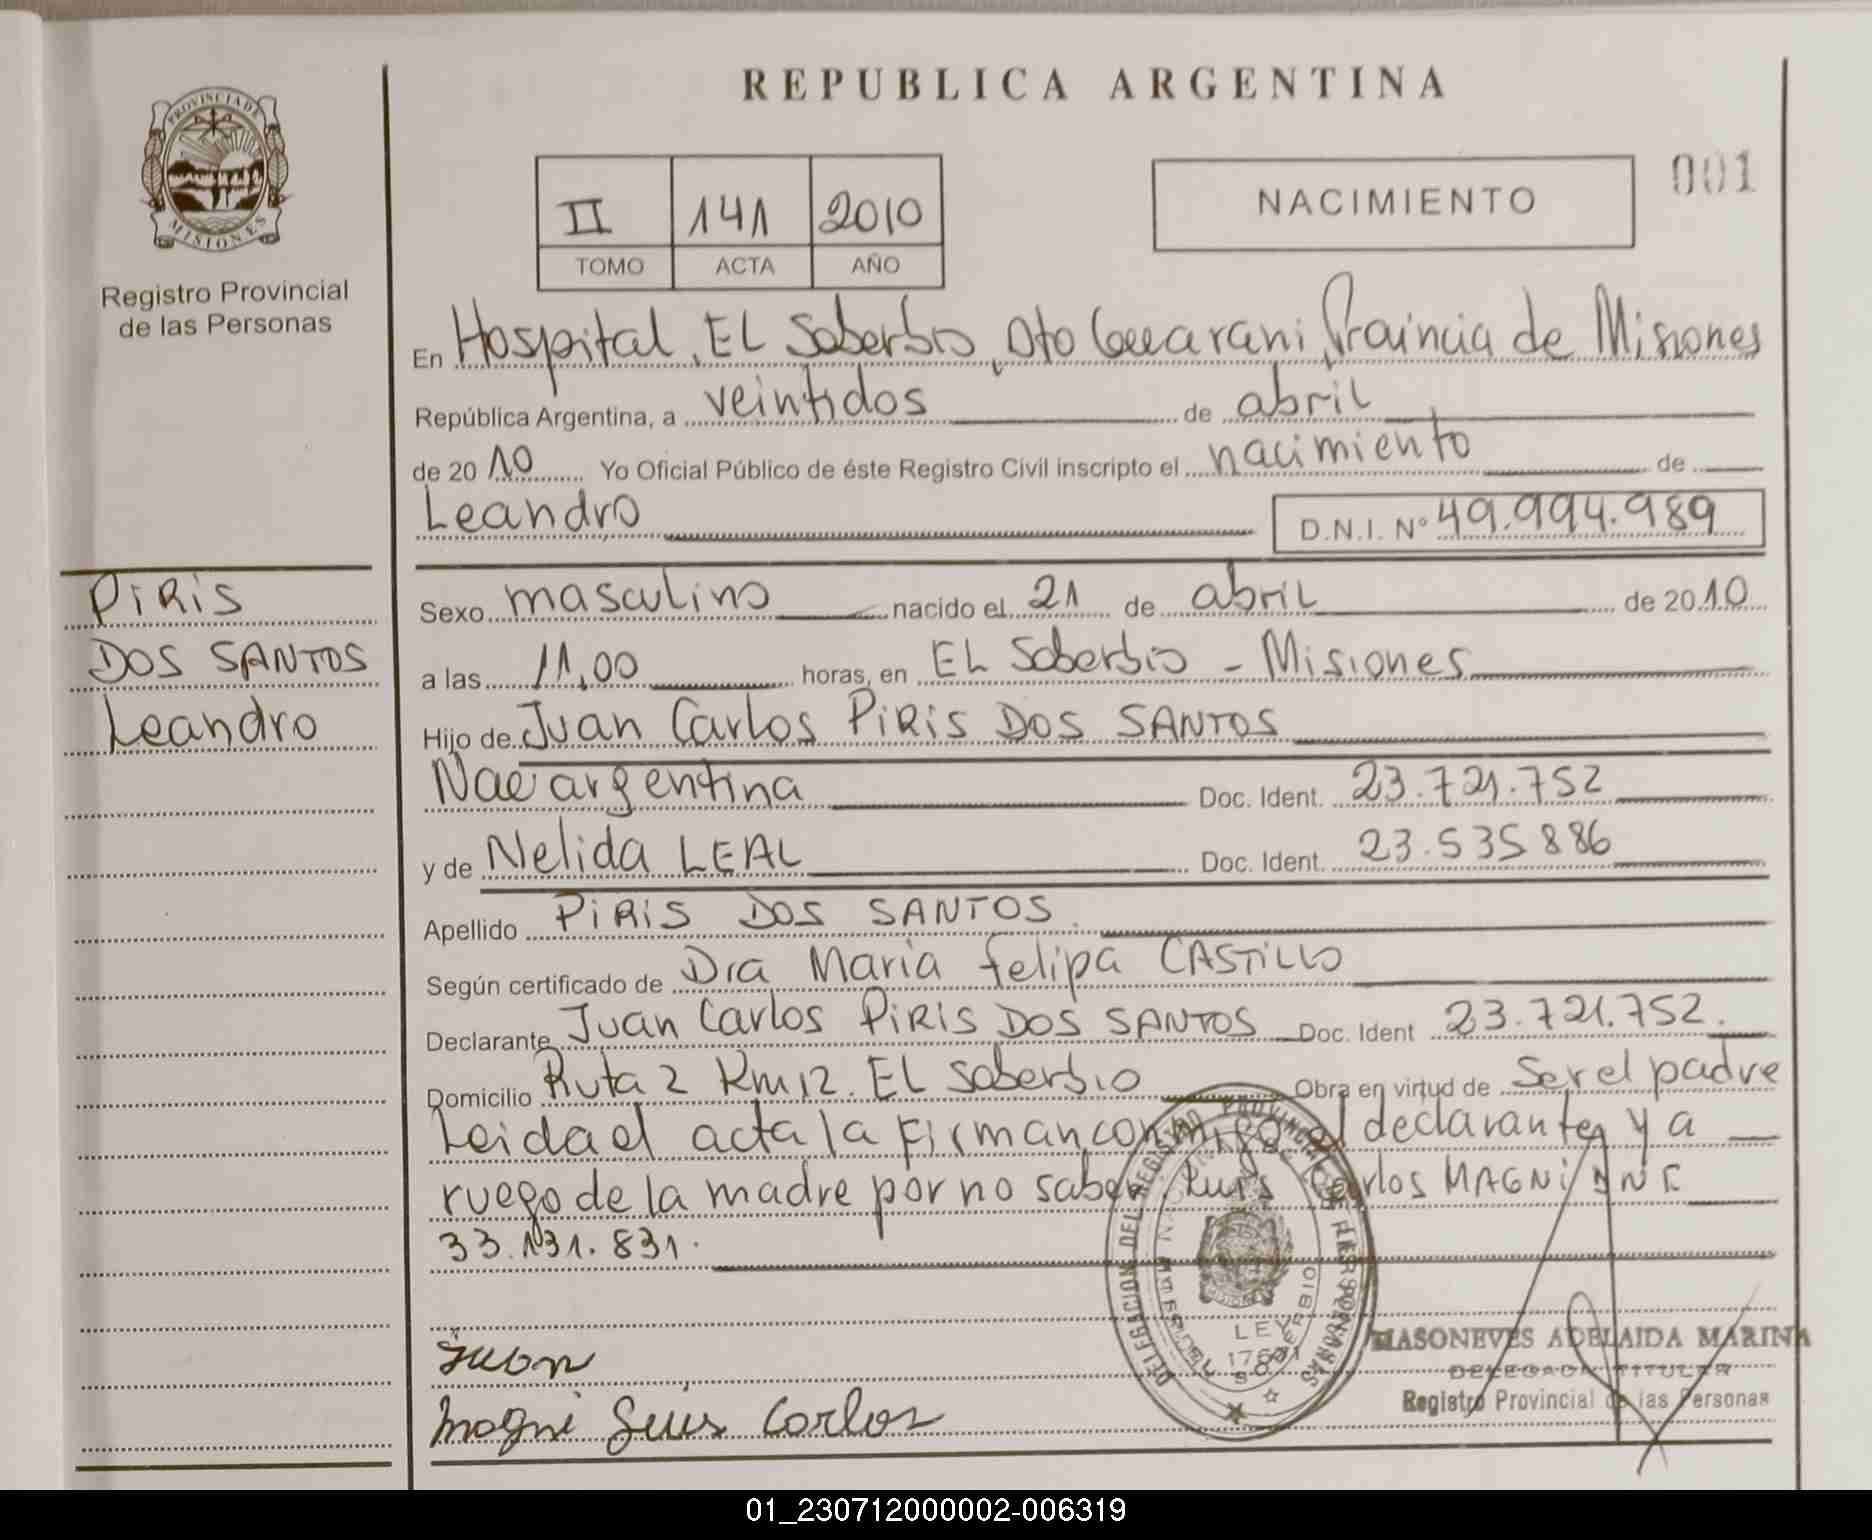 REPUBLICA ARGENTINA
PROVINCIA DE
MISIONES
Registro Provincial
de las Personas
II 141 2010
TOMO ACTA AÑO
NACIMIENTO
001
En Hospital, EL Soberbio, Dto Guarani, Provincia de Misiones
República Argentina, a veintidos de abril
de 2010 Yo Oficial Público de éste Registro Civil inscripto el nacimiento de
Leandro D.N.I. Nº 49.994.989
PiRis
DOS SANTOS
Leandro
Sexo masculino nacido el 21 de abril de 2010
a las 11,00 horas, en EL Soberbio - Misiones
Hijo de Juan Carlos PiRis DOS SANTOS
Nac argentina Doc. Ident. 23.721.752
y de Nelida LEAL Doc. Ident. 23.535.886
Apellido PiRis DOS SANTOS.
Según certificado de Dra Maria felipa CASTiLLO
Declarante Juan Carlos PiRis DOS SANTOS Doc. Ident 23.721.752.
Domicilio Ruta 2 Km 12. EL Soberbio Obra en virtud de Ser el padre
Leida el acta la firman conmigo el declarante y a
ruego de la madre por no saber, Luis Carlos
33.131.831.
DELEGACION DEL REGISTRO PROVINCIAL DE LAS PERSONAS
EL SOBERBIO
LEY
17671
Juan
Luis Carlos
MASONEVES ADELAIDA MARINA
DELEGADA TITULAR
Registro Provincial de las Personas
01_230712000002-006319